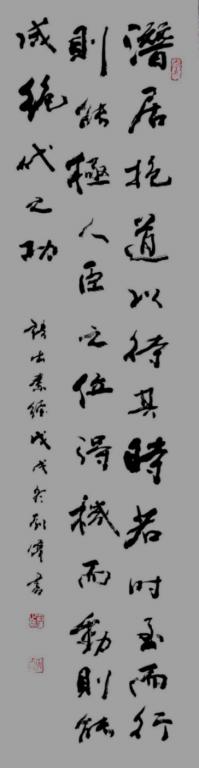 潛居抱道以待其時者时至而行
則能極人臣之位得機而動則能
成絶代之功
語出素經戊戌冬
書